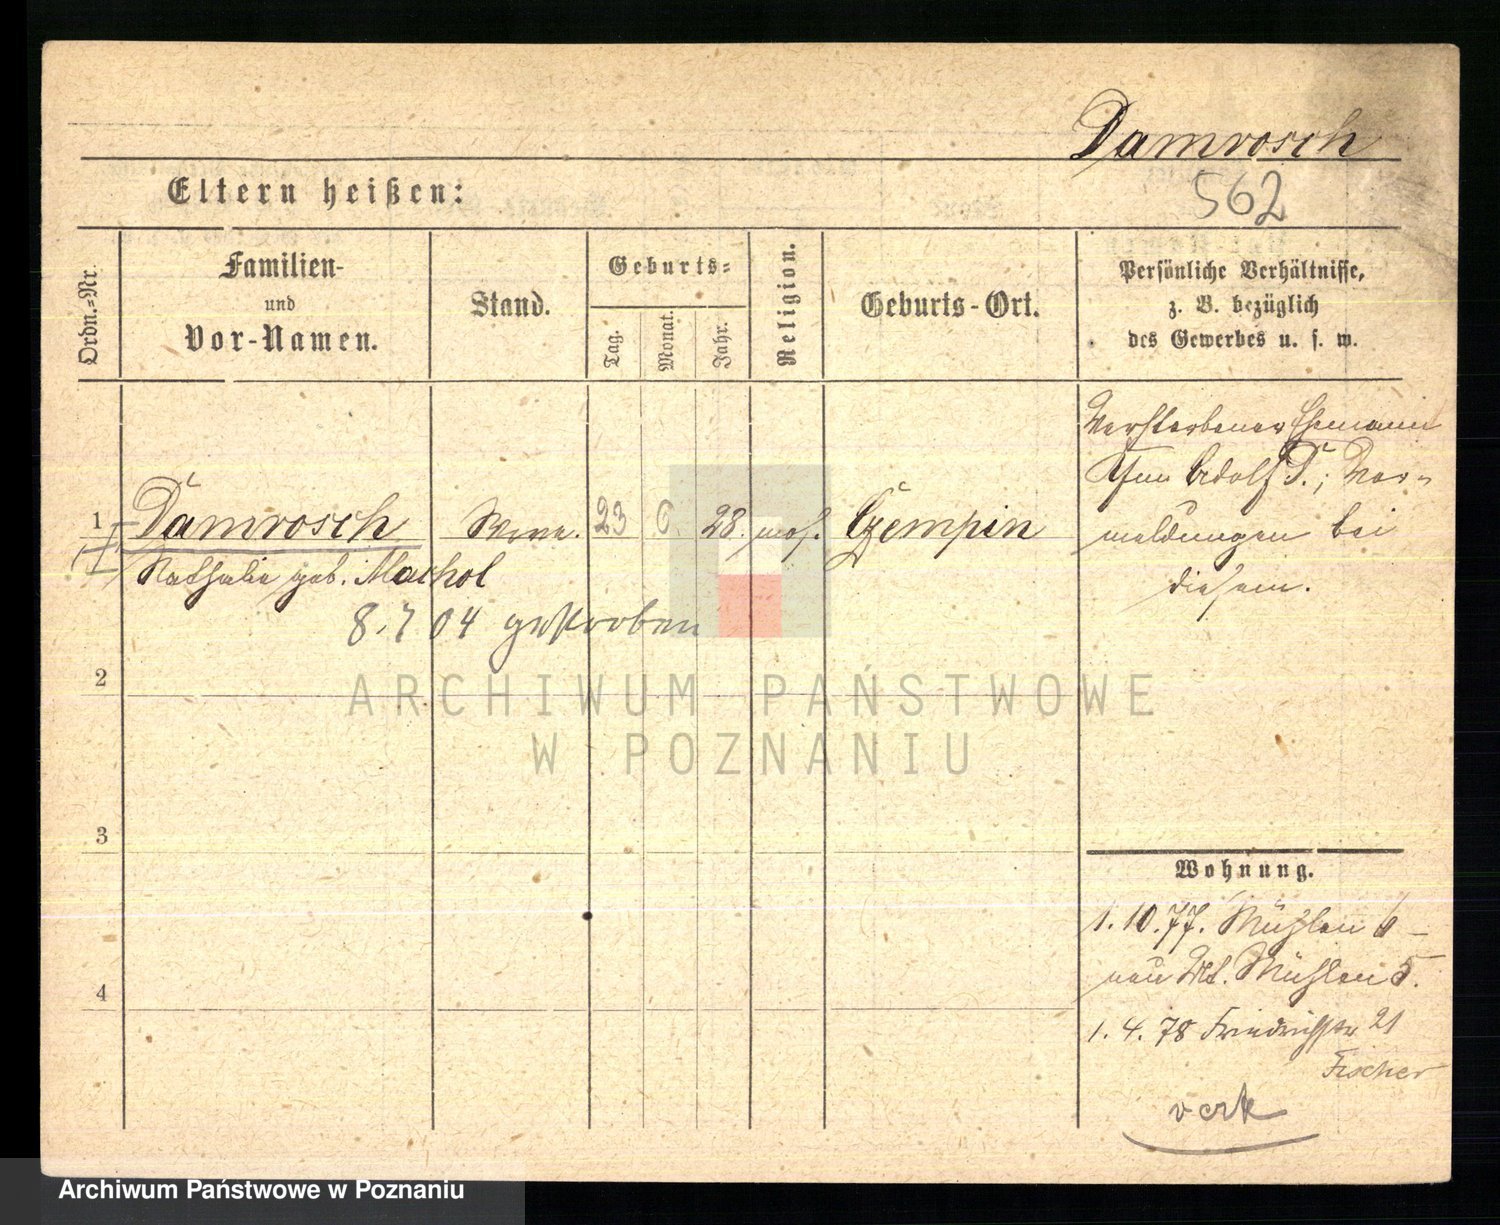 Damrosch
562
Eltern heißen:
Ordn.-Nr.
Familien-
und
Vor-Namen.
Stand.
Geburts-
Tag.
Monat.
Jahr.
Religion.
Geburts-Ort.
Persönliche Verhältnisse,
z. B. bezüglich
des Gewerbes u. s. w.
Verstorbener Ehemann
Adolf D.; Ver-
meldungen bei
diesem.
1 Damrosch Wwe. 23 6. 28. mos. Czempin
Nathalie geb. Machol
8. 7 04 gestorben
2
3
4
Wohnung.
1. 10. 77. Mühlen 6
neu Mühlen 5.
1. 4. 78 Friedrichstr 21
Fischer
ARCHIWUM PAŃSTWOWE
W POZNANIU
Archiwum Państwowe w Poznaniu